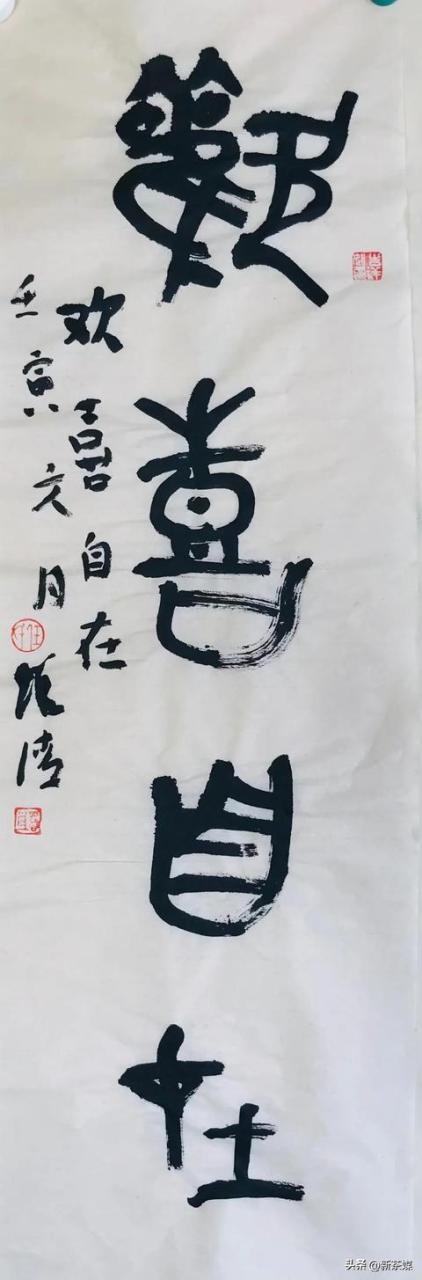 歡喜自在
欢喜自在
壬寅六月
头条@新茶媒